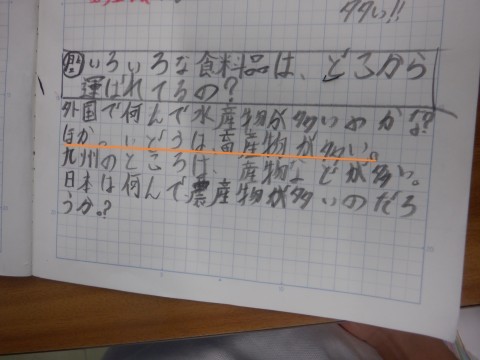 多い!!
問 いろいろな食料品は、どこから
運ばれてるの?
外国で何んで水産物が多いのかな?
ほか。いどうは、畜産物が多い。
九州のところは、産物などが多い。
日本は何んで農産物が多いのだろ
うか。?